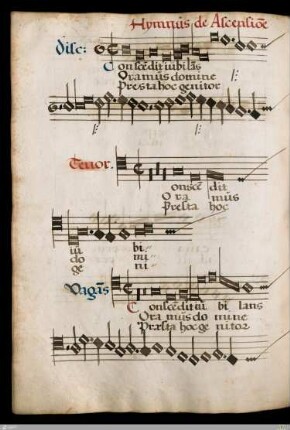 Hymnus de Ascēsiōe
Disc:
Conscēdit iubilās
Oramus domine
Presta hoc genitor
Tenor.
Conscē dit
Ora mus
Presta hoc
iu bi-
do mi
ge ni
Vagās
Conscēdit iu bi lans
Oramus do mine
Præsta hoc ge nitor